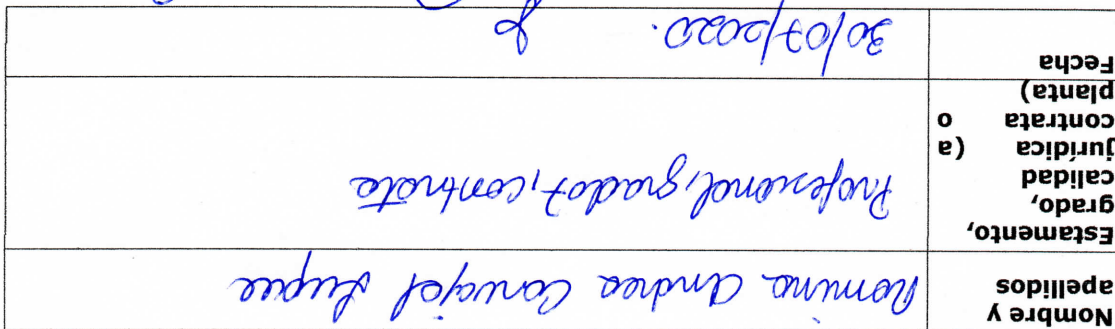 Nombre y
apellidos
Romina Andrea Carvajal
Estamento,
grado,
calidad
jurídica (a
contrata o
planta)
Profesional, grado 7, contrata
Fecha
30/07/2020.